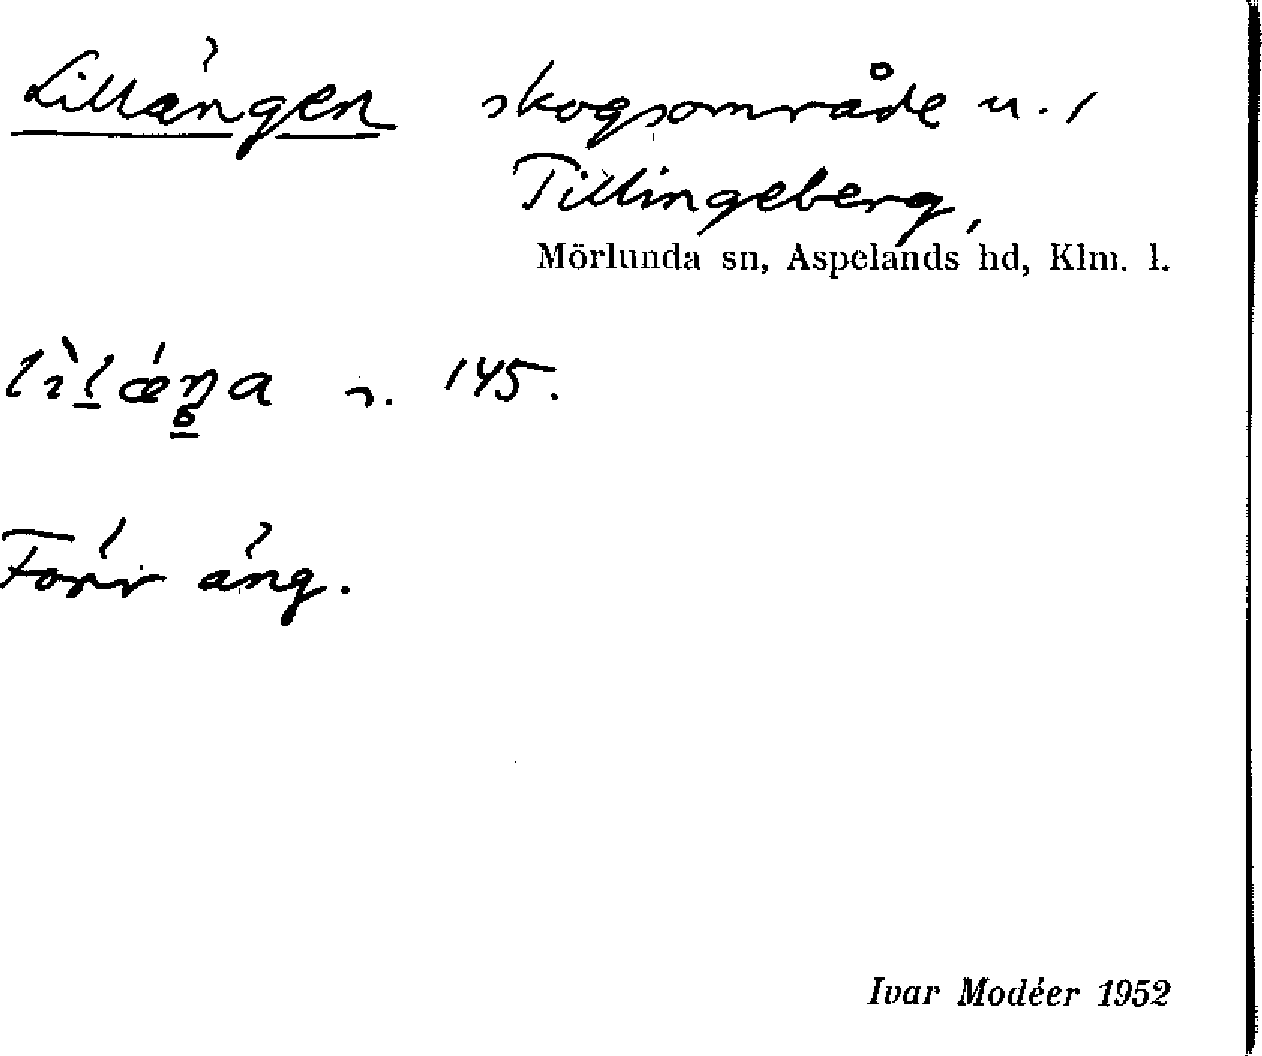 Lillängen skogsområde u. 1
Tillingeberg,
Mörlunda sn, Aspelands hd, Klm. l.
lìlǽŋa s. 145.
Förr äng.
Ivar Modéer 1952